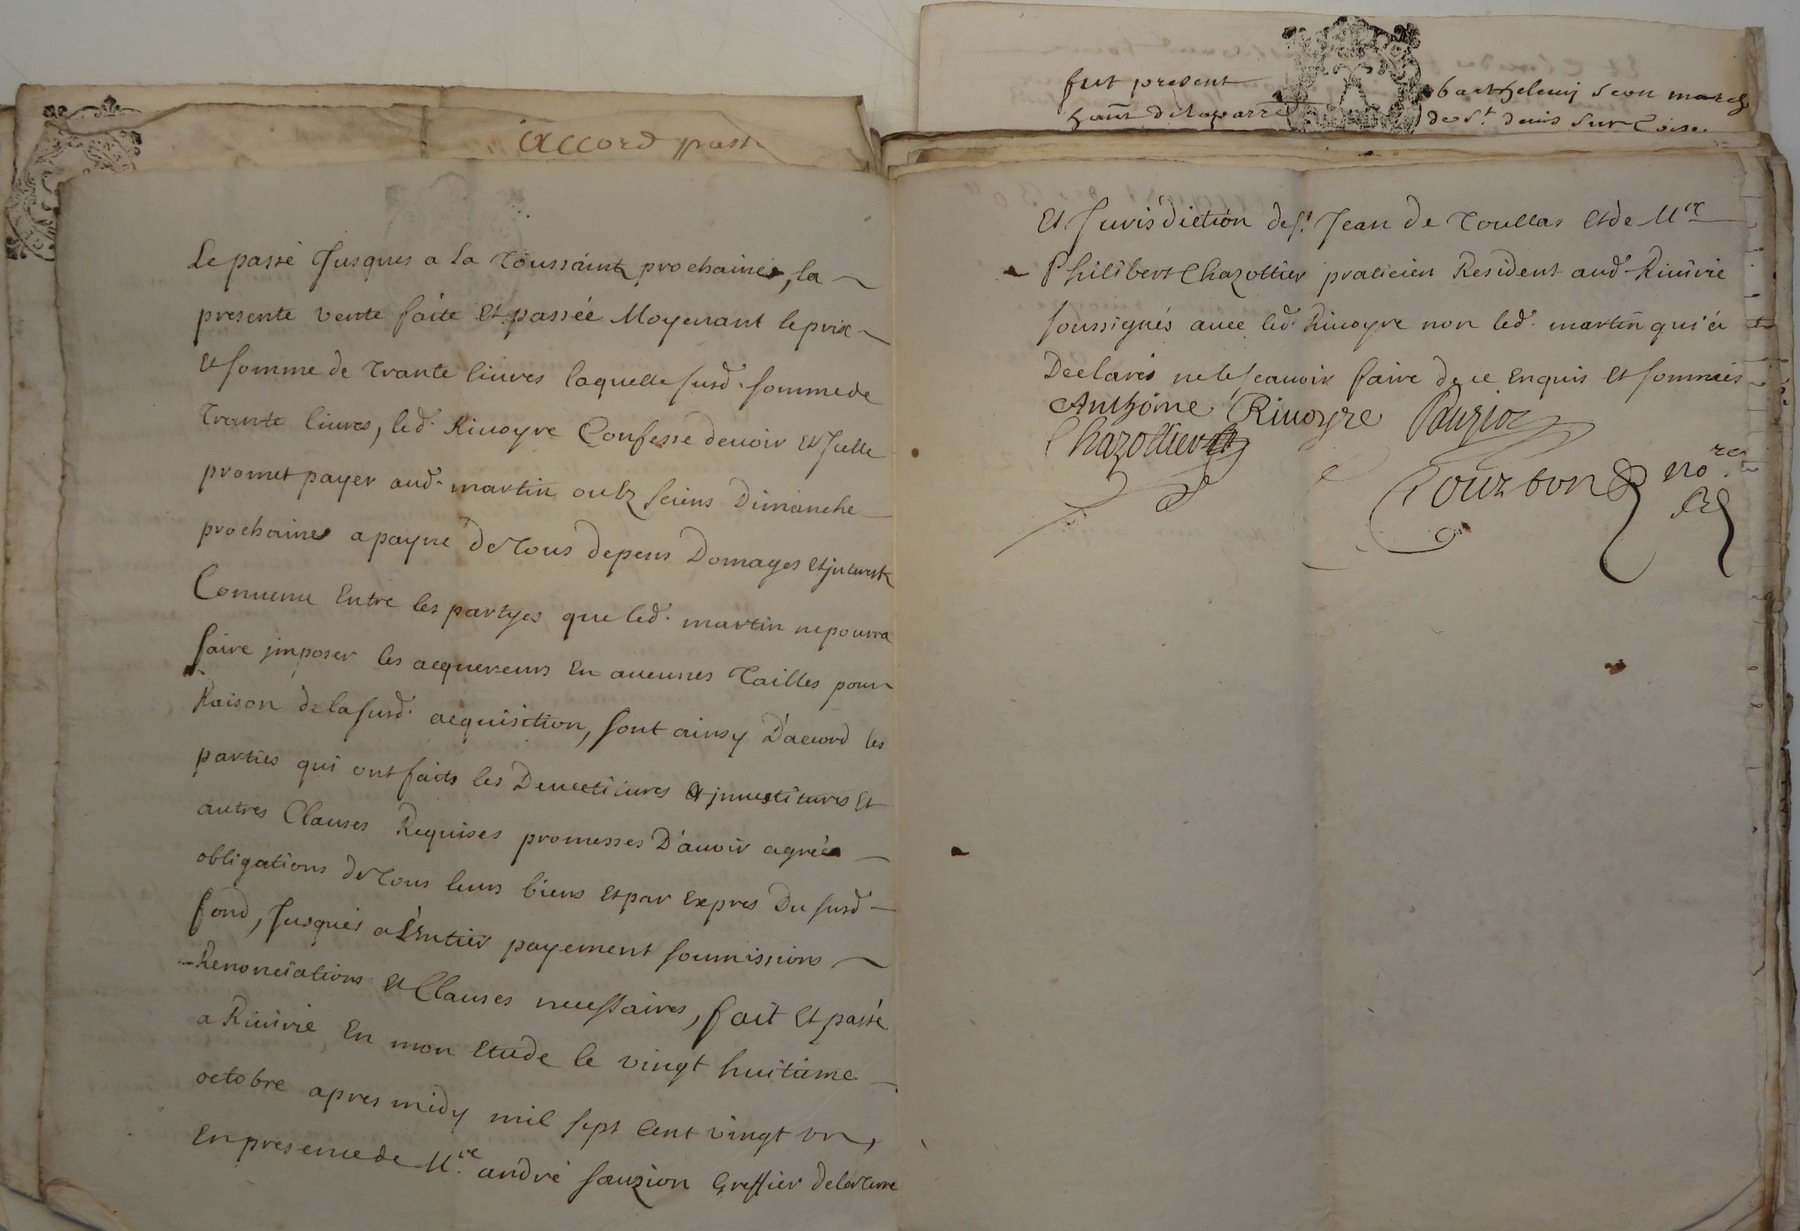 accord passé
fut present barthelemy seon march
de St denis sur Coise
Le passé Jusques a la toussaint prochaine, la
presente vente faite Et passée Moyenant le prix
Et somme de trante livres laquelle susd. somme de
trante livres, led. Rivoyre Confesse devoir Et Jcelle
promet payer aud. martin ou ez siens Dimanche
prochaine a payne de tous depens Domages Et jnterestz
Convenu Entre les partyes que led. martin ne pourra
faire jmposer les acquereurs En aucunes tailles pour
Raison de la susd. acquisition, sont ainsy D'accord les
parties qui ont faits les Devetitures Et jnvestitures Et
autres Clauses Requises promesses D'avoir agréé
obligations de tous leurs biens Et par Expres Du susd
fond, Jusques a L'Entier payement soumissions
Renonciations Et Clauses necessaires, fait Et passé
a Rivirie En mon Etude le vingt huitieme
octobre apres midy mil sept Cent vingt un,
En presence de Mre andré sauzion Greffier de la terre
Et Jurisdiction de St Jean de toullas Et de Mre
Philibert Chazottier praticien Resident aud. Rivirie
soussignés avec led. Rivoyre non led. martin qui a
Declaré ne le scavoir faire de ce Enquis Et sommés
Anthoine Rivoyre Sauzion
Chazottier
Tourbon nore